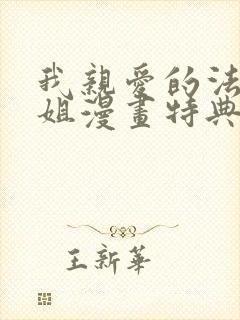 我親愛的法
姐漫畫特典
王新華